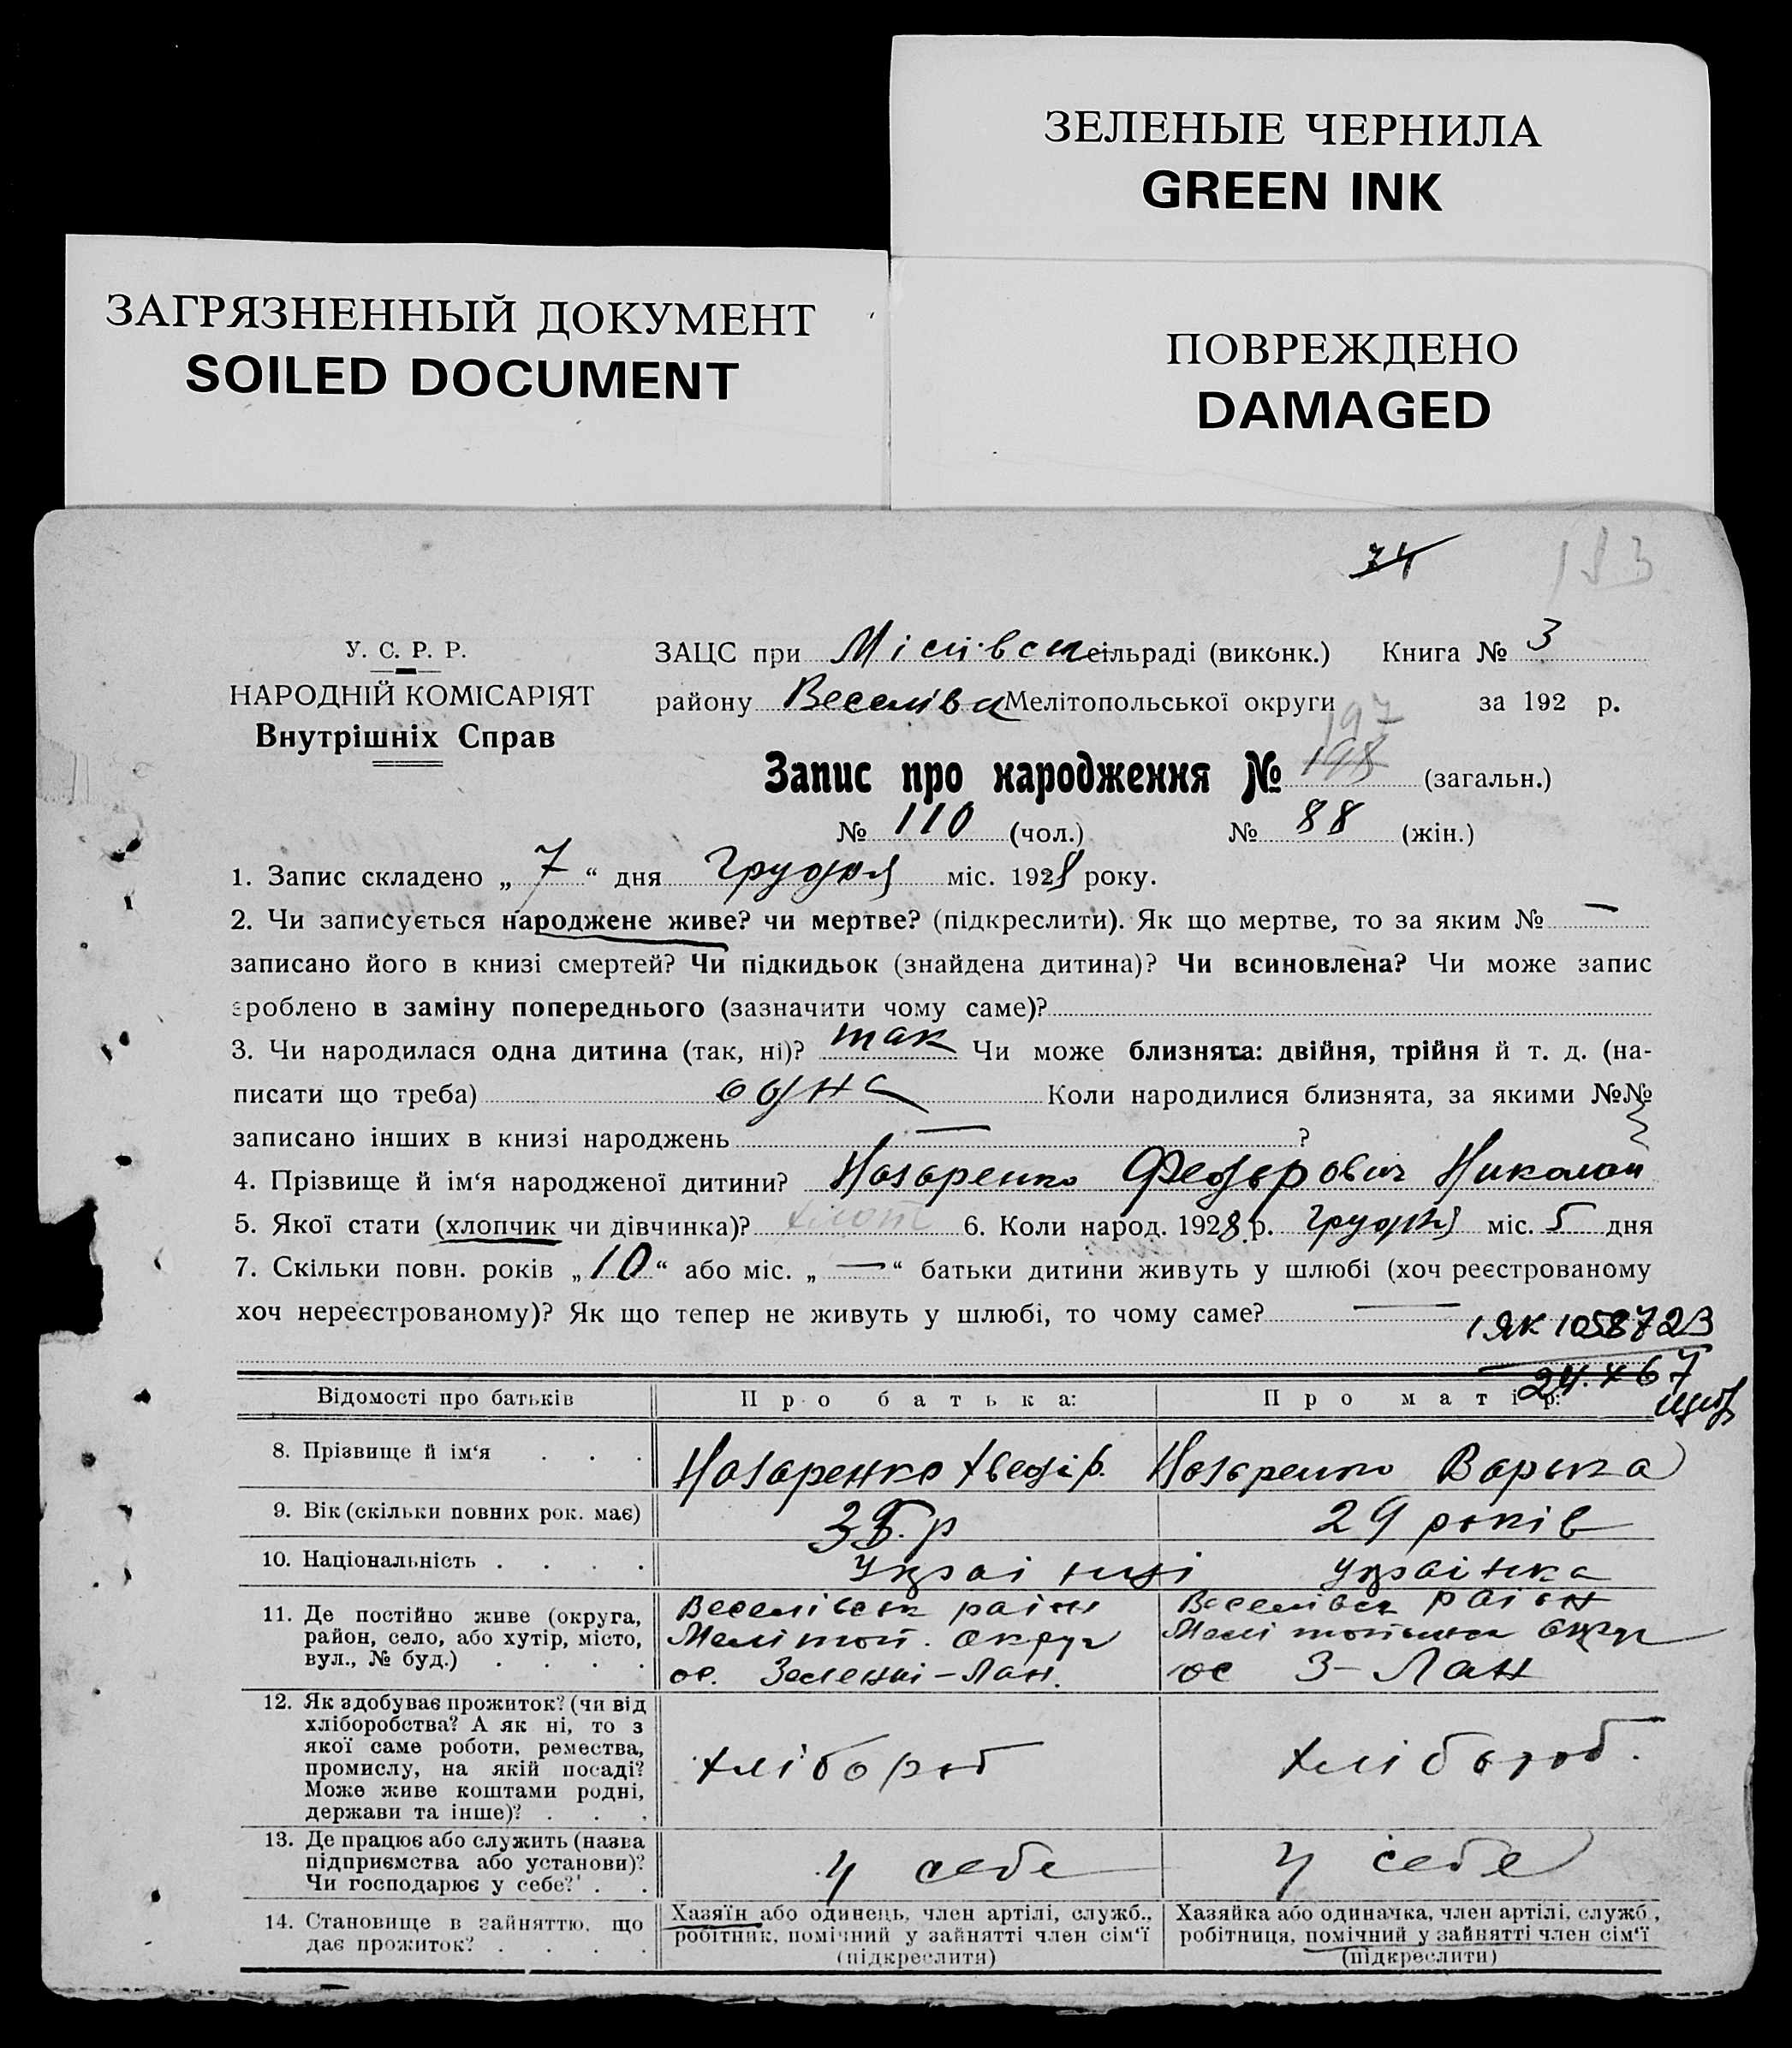 ЗЕЛЕНЫЕ ЧЕРНИЛА
GREEN INK
ЗАГРЯЗНЕННЫЙ ДОКУМЕНТ
SOILED DOCUMENT
ПОВРЕЖДЕНО
DAMAGED
74
183
У. С. Р. Р.
НАРОДНІЙ КОМІСАРІЯТ
Внутрішніх Справ
ЗАЦС при сільраді (виконк.) Книга № 3
району Веселівск Мелітопольської округи за 192 р.
197
Запис про народження № 198 (загальн.)
№ 110 (чол.) № 88 (жін.)
1. Запис складено „ 7 “ дня Грудня міс. 1928 року.
2. Чи записується народжене живе? чи мертве? (підкреслити). Як що мертве, то за яким № —
записано його в книзі смертей? Чи підкидьок (знайдена дитина)? Чи всиновлена? Чи може запис
зроблено в заміну попереднього (зазначити чому саме)?
3. Чи народилася одна дитина (так, ні)? так Чи може близнята: двійня, трійня й т. д. (на-
писати що треба) одна Коли народилися близнята, за якими №№
записано інших в книзі народжень — ?
4. Прізвище й ім‘я народженої дитини? Назаренко Федьрович Николай
5. Якої стати (хлопчик чи дівчинка)? хлоп 6. Коли народ. 1928 р. грудня міс. 5 дня
7. Скільки повн. років „ 10 “ або міс. „ — “ батьки дитини живуть у шлюбі (хоч реєстрованому
хоч нереєстрованому)? Як що тепер не живуть у шлюбі, то чому саме? —
ЯК 1058723
Відомості про батьків Про батька: Про матір:
8. Прізвище й ім‘я . . . Назаренко Хведір. Назаренко Варька
9. Вік (скільки повних рок. має) р 29 років
10. Національність . . . . Українці українка
11. Де постійно живе (округа, район, село, або хутір, місто, вул., № буд.) . . . .
Веселівськ раїон
Меліт оп. округ
ос. Зеленьі-Лан.
Веселівск раіон
Мелі топольск округ
ос З-Лан
12. Як здобуває прожиток? (чи від хліборобства? А як ні, то з якої саме роботи, ремества, промислу, на якій посаді? Може живе коштами родні, держави та інше)? . . .
хлібороб хлібороб.
13. Де працює або служить (назва підприємства або установи)? Чи господарює у себе? . .
у себе у себе
14. Становище в зайняттю, що дає прожиток? . . . .
Хазяїн або одинець, член артілі, служб., робітник, помічний у зайнятті член сім‘ї (підкреслити)
Хазяйка або одиначка, член артілі, служб., робітниця, помічний у зайнятті член сім‘ї (підкреслити)